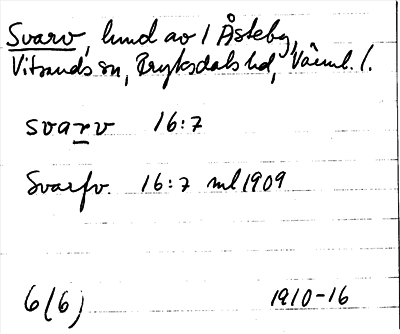 Svarv, hmd av 1 Åsteby,
Vitsands sn, Fryksdals hd, Värml. l.
svarv 16:7
Svarfv. 16:7 ml 1909
6(6) 1910-16